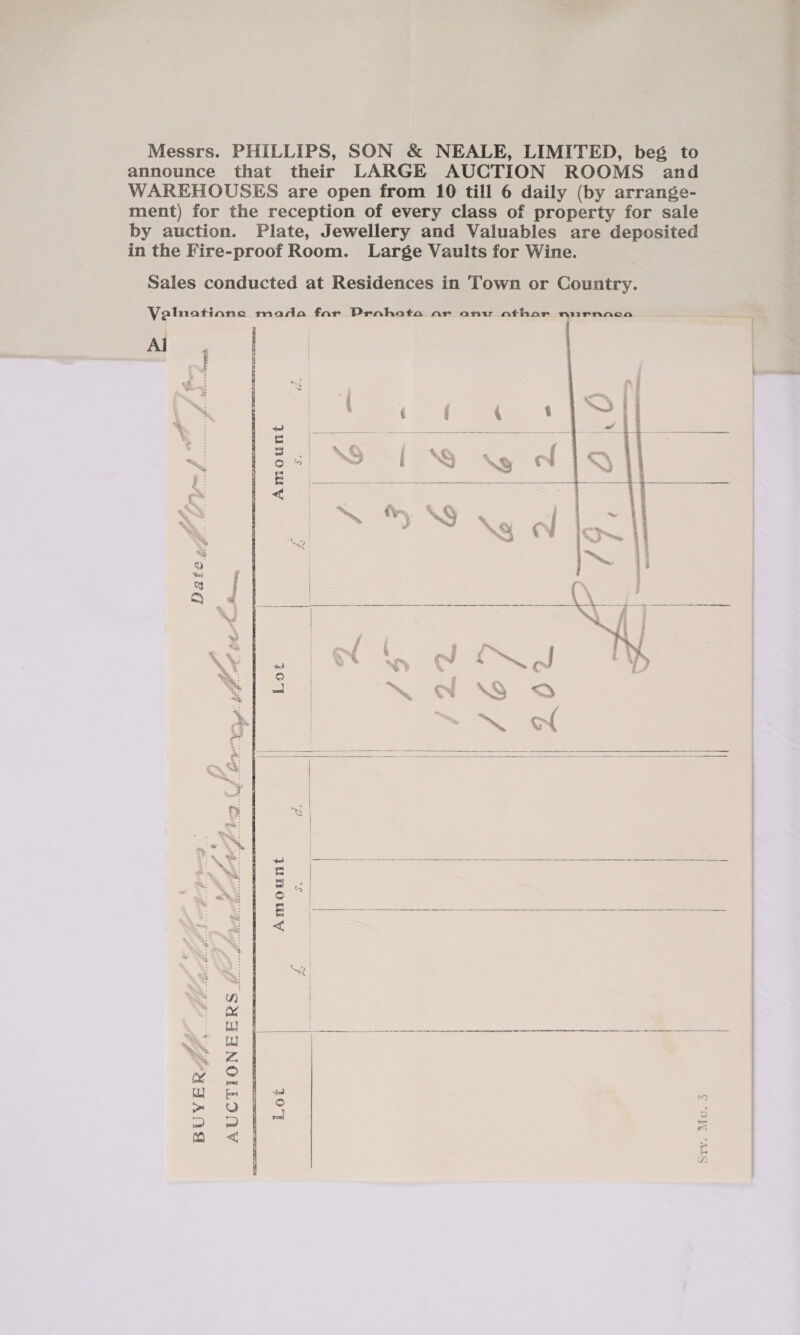 Messrs. PHILLIPS, SON & NEALE, LIMITED, beg to
announce that their LARGE AUCTION ROOMS and
WAREHOUSES are open from 10 till 6 daily (by arrange-
ment) for the reception of every class of property for sale
by auction. Plate, Jewellery and Valuables are deposited
in the Fire-proof Room. Large Vaults for Wine.
Sales conducted at Residences in Town or Country.
Valuations made for Probate or any other purpose
Al
BUYER Date
AUCTIONEERS
Lot Amount Lot Amount
£ s. d. £ s. d.
2 1 6 -
15 3 1 -
122 6 6 -
167 6 6 -
202 2 2 -
£19.
Sty. Mu. 3